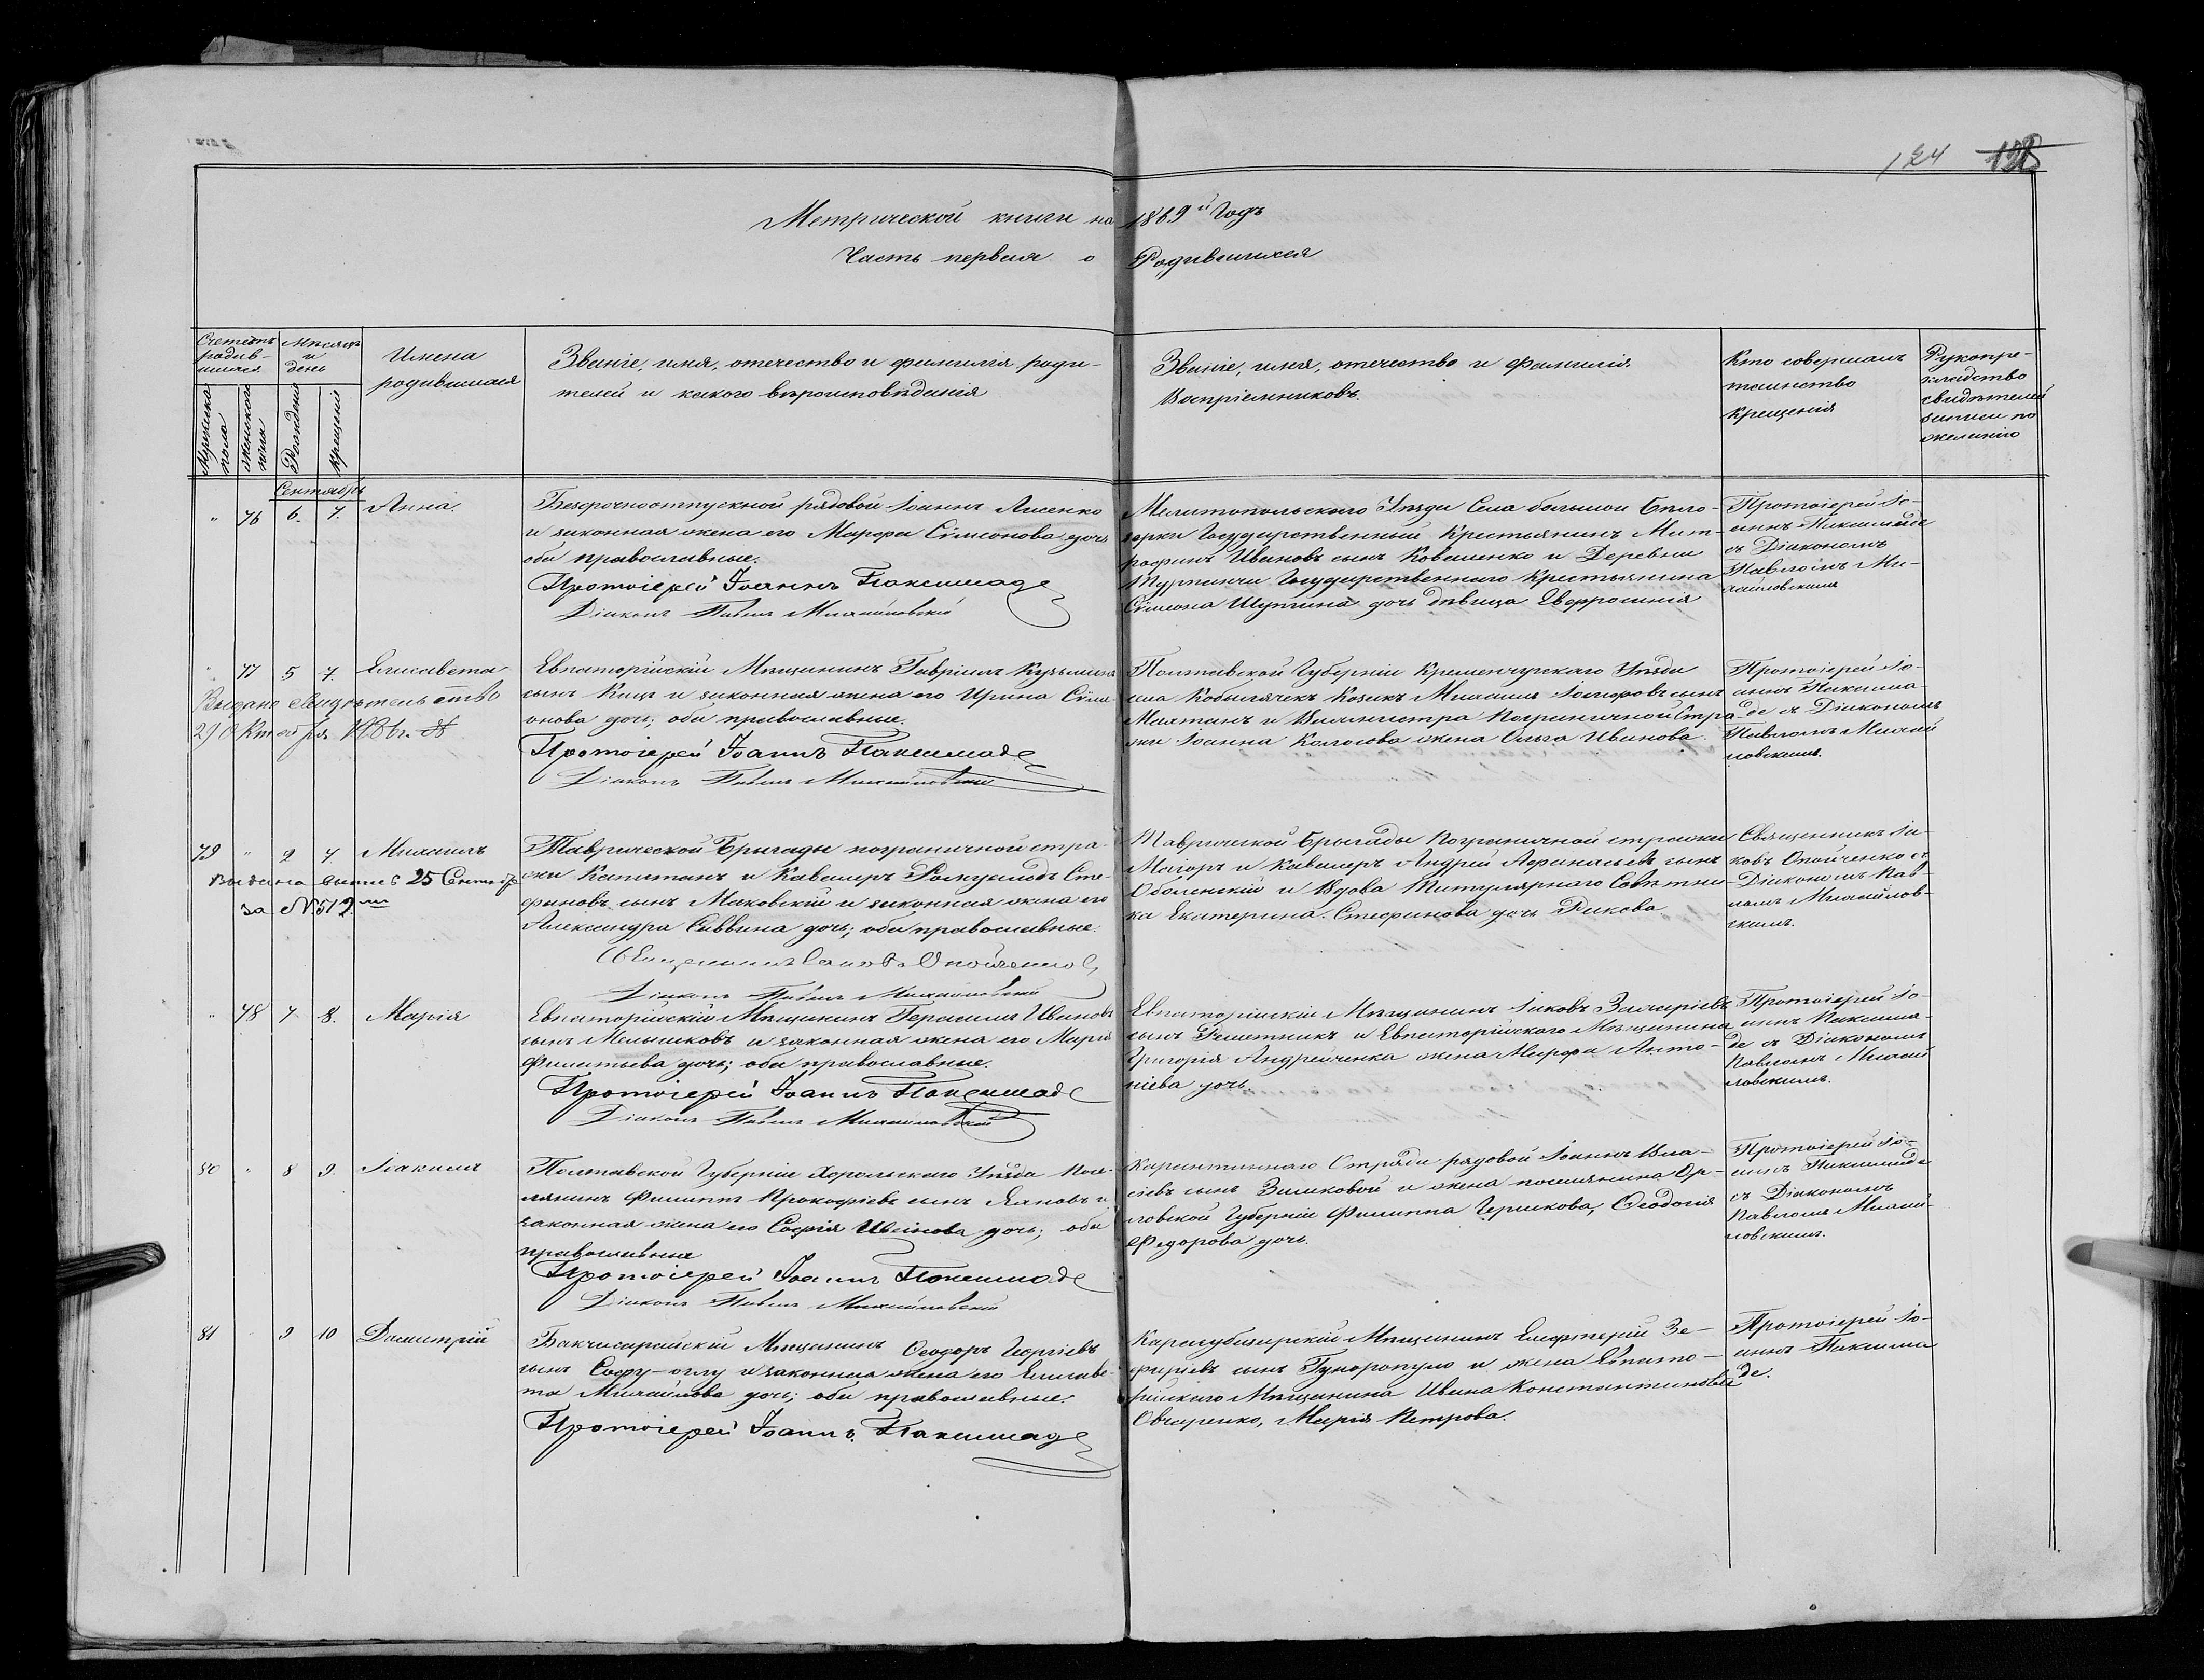 124 125
Метрической книги на 1869й Годъ
Часть первая о Родившихся
Счетъ родив-
шихся
Мѣсяцъ
и
день
Имена
родившихся
Званіе, имя, отечество и фамилія роди-
телей и какого вѣроисповѣданія
Званіе, имя, отечество и фамилія
Воспріемниковъ.
Кто совершалъ
таинство
крещенія
Рукопри-
кладство
свидѣтелей
записи по
желанію
Мужеска
пола
женскаго
пола
Рожденія
крещенія
Сентябрь
" 76 6. 7. Анна.
Безсрочноотпускной рядовой Іоаннъ Лисенко
и законная жена его Марфа Сімеонова дочь
оба православные.
Протоіерей Іоаннъ Паксимаде
Діаконъ Павелъ Михайловскій
Мелитопольскаго Уѣзда Села большой Бѣло-
зерки Государственный Крестьянинъ Мит-
рофанъ Ивановъ сынъ Коваленко и Деревни
Государственнаго Крестьянина
Сімеона Шупкина дочь дѣвица Евфросинія
Протоіерей Іо-
аннъ Паксимаде
съ Діакономъ
Павломъ Ми-
хайловскимъ
" 77 5 7. Елисавета
Выдано свидѣтельство
21 Октября 1886г.
Евпаторійскій Мѣщанинъ Гавріилъ Кузьминъ
сынъ Кицъ и законная жена его Ирина Сіме-
онова дочь; оба православные.
Протоіерей Іоаннъ Паксимаде
Діаконъ Павелъ Михайловскій
Полтавской Губерніи Кременчугскаго Уѣзда
села Кобылячекъ Козакъ Михаилъ Іосифовъ сынъ
Махтанъ и Вахмистра Пограничной Стра-
жи Іоанна Колосова жена Ольга Иванова.
Протоіерей Іо-
аннъ Паксима-
де съ Діакономъ
Павломъ Михай
ловскимъ.
79 " 2 7. Михаилъ
Выдана выпись 25 Сентября
за №512.
Таврической Бригады пограничной стра-
жи Капитанъ и Кавалеръ Ромуальдъ Сте-
фановъ сынъ Маковскій и законная жена его
Александра Саввина дочь; оба православные.
Священникъ Іаковъ Опойченко
Діаконъ Павелъ Михайловскій
Таврической Бригады Пограничной стражи
Маіоръ и Кавалеръ Андрей Афанасьевъ сынъ
Оболенскій и Вдова Титулярнаго Совѣтни-
ка Екатерина Стефанова дочь Рикова
Священникъ Іа-
ковъ Опойченко съ
Діакономъ Пав-
ломъ Михайлов-
скимъ.
" 78 7 8. Марія
Евпаторійскій Мѣщанинъ Герасимъ Ивановъ
сынъ Мельниковъ и законная жена его Марія
Филатьева дочь; оба православные.
Протоіерей Іоаннъ Паксимаде
Діаконъ Павелъ Михайловскій
Евпаторійскій Мѣщанинъ Іаковъ Захаріевъ
сынъ Решетникъ и Евпаторійскаго Мѣщанина
Григорія Андрейченка жена Марфа Анто-
ніева дочь
Протоіерей Іо-
аннъ Паксима-
де съ Діакономъ
Павломъ Михай
ловскимъ.
80 " 8 9. Іоакимъ
Полтавской Губерніи Хорольскаго Уѣзда Посе-
лянинъ Филиппъ Прокофіевъ сынъ Ляховъ и
законная жена его Софія Иванова дочь; оба
православные
Протоіерей Іоаннъ Паксимаде
Діаконъ Павелъ Михайловскій
Карантиннаго Отряда рядовой Іоаннъ Вла-
сіевъ сынъ Зимковой и жена поселянина Ор-
ловской Губерніи Филиппа Черникова, Феодосія
Федорова дочь.
Протоіерей Іо-
аннъ Паксимаде
съ Діакономъ
Павломъ Михай-
ловскимъ.
81 " 9 10 Димитрій
Бахчисарайскій Мѣщанинъ Феодоръ Георгіевъ
сынъ Софу-оглу и законная жена его Елисаве-
та Михайлова дочь; оба православные.
Протоіерей Іоаннъ Паксимаде
Карасубазарскій Мѣщанинъ Елефтерій Зе-
феріевъ сынъ Гунаропуло и жена Евпато-
рійскаго Мѣщанина Ивана Константинова
Овчаренко, Марія Петрова.
Протоіерей Іо-
аннъ Паксима
де.